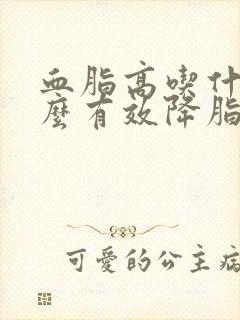 血脂高喫什
麼有效降脂
可愛的公主病